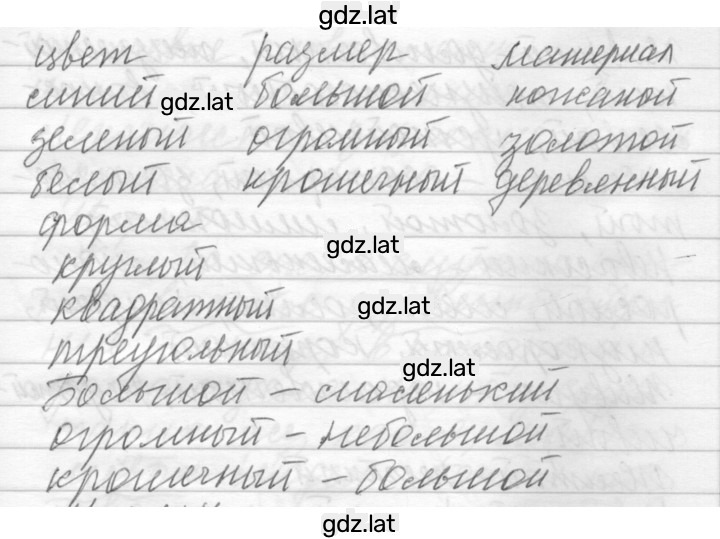 gdz.lat
цвет размер материал
синий gdz.lat большой кожаный
зеленый огромный золотой
белый крошечный деревянный
форма
gdz.lat
круглый
квадратный gdz.lat
треугольный
gdz.lat
Большой – маленький
огромный – небольшой
крошечный – большой
gdz.lat